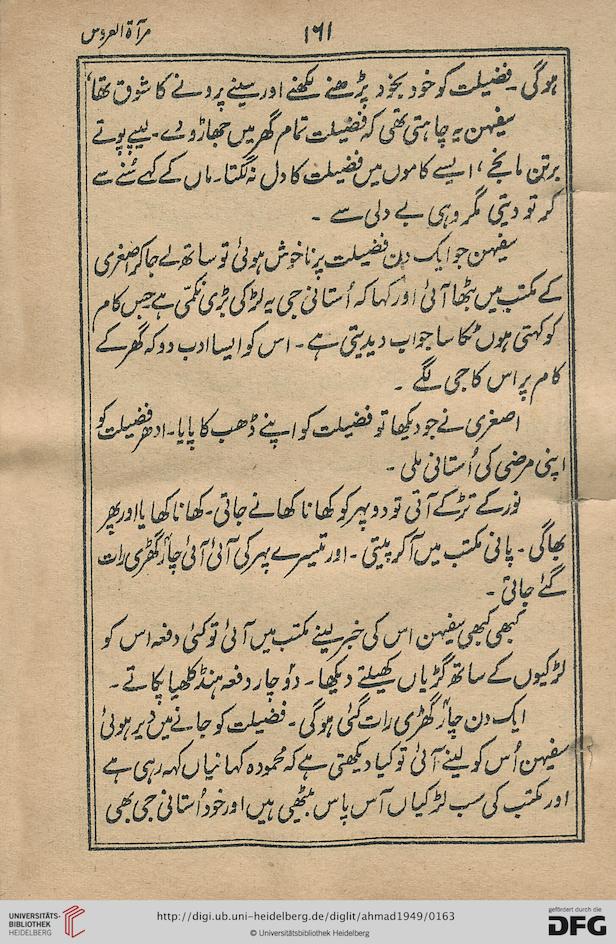 مرآۃ العروس
۱۶۱
ہوگی۔ فضیلت کو خود بخود پڑھنے لکھنے اور سینے پرونے کا شوق تھا،
سفیہن یہ چاہتی تھی کہ فضیلت تمام گھر میں جھاڑو دے۔ لیپے پوتے
برتن مانجے، ایسے کاموں میں فضیلت کا دل نہ لگتا۔ ماں کے کہے سُنے سے
کر تو دیتی مگر وہی بے دلی سے ۔
سفیہن جو ایک دن فضیلت پر ناخوش ہوئی تو ساتھ لے جا کر اصغری
کے مکتب میں بٹھا آئی اور کہا کہ اُستانی جی یہ لڑکی بڑی نکمّی ہے جس کام
کو کہتی ہوں ٹکا سا جواب دیدیتی ہے۔ اس کو ایسا ادب دو کہ گھر کے
کام پر اس کا جی لگے ۔
اصغری نے جو دیکھا تو فضیلت کو اپنے ڈھب کا پایا۔ ادھر فضیلت کو
اپنی مرضی کی اُستانی ملی ۔
نور کے تڑکے آتی تو دوپہر کو کھانا کھانے جاتی۔ کھانا کھایا اور پھر
بھاگی ۔ پانی مکتب میں آ کر پیتی ۔ اور تیسرے پہر کی آئی آئی چار گھڑی رات
گئے جاتی ۔
کبھی کبھی سفیہن اس کی خبر لینے مکتب میں آئی تو کئی دفعہ اس کو
لڑکیوں کے ساتھ گڑیاں کھیلتے دیکھا۔ دو چار دفعہ ہنڈ کلھیا پکاتے ۔
ایک دن چار گھڑی رات گئی ہوگی۔ فضیلت کو جانے میں دیر ہوئی
سفیہن اُس کو لینے آئی تو کیا دیکھتی ہے کہ محمودہ کہانیاں کہہ رہی ہے
اور مکتب کی سب لڑکیاں آس پاس بیٹھی ہیں اور خود اُستانی جی بھی
UNIVERSITÄTS-
BIBLIOTHEK
HEIDELBERG
http://digi.ub.uni-heidelberg.de/diglit/ahmad1949/0163
© Universitätsbibliothek Heidelberg
gefördert durch die
DFG